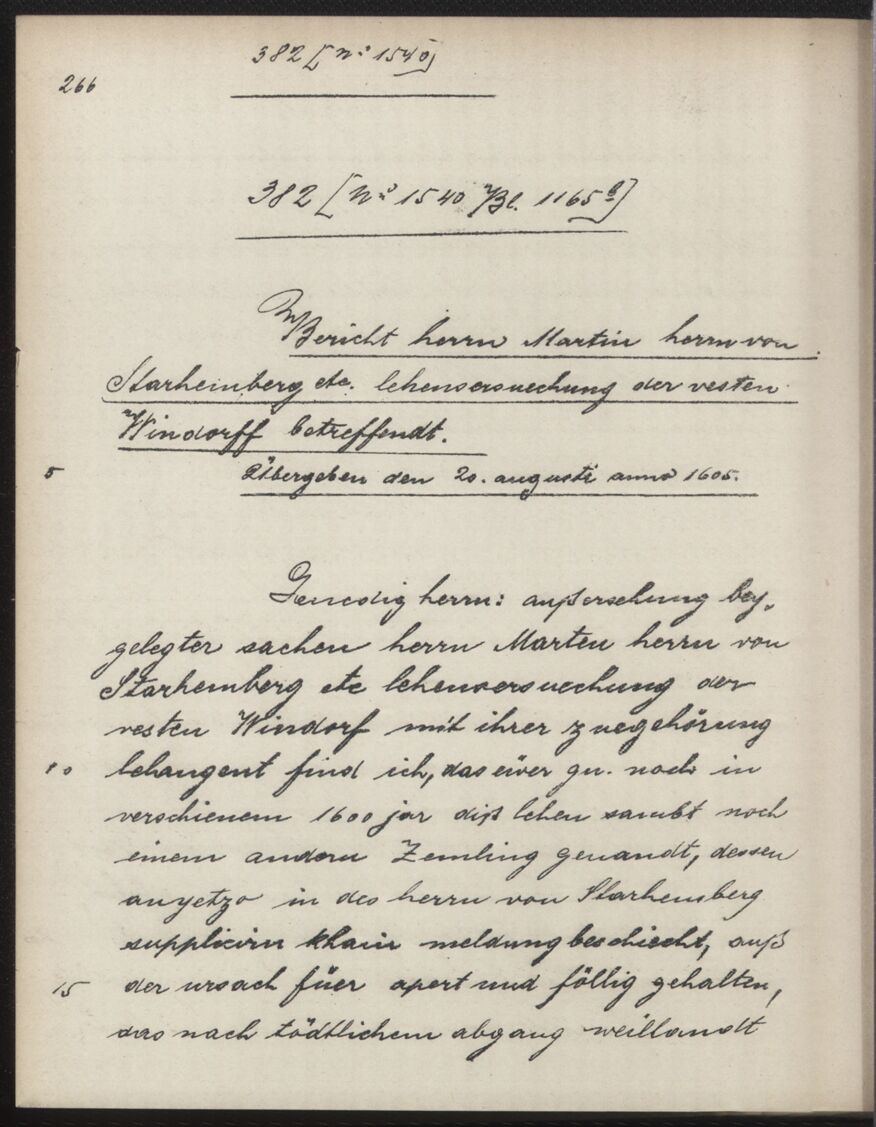 382 [Nº 1540]
266
382 [Nº 1540 Bl. 1165a]
Bericht herrn Martin herrn von
Starhemberg etc. lehensersuechung der vesten
Windorff betreffendt.
5 Übergeben den 20. augusti anno 1605.
Genedig herrn: außersehung bey-
gelegter sachen herrn Marten herrn von
Starhemberg etc lehensersuechung der
vesten Windorf mit ihrer zuegehörung
10 belangent find ich, das eüer gn. noch in
verschienem 1600 jar diß lehen sambt noch
einem andern Zemling genandt, dessen
anyetzo in des herrn von Starhemberg
supplicirn khain meldung beschiecht, auß
15 der ursach füer apert und föllig gehalten,
das nach tödtlichem abgang weillandt